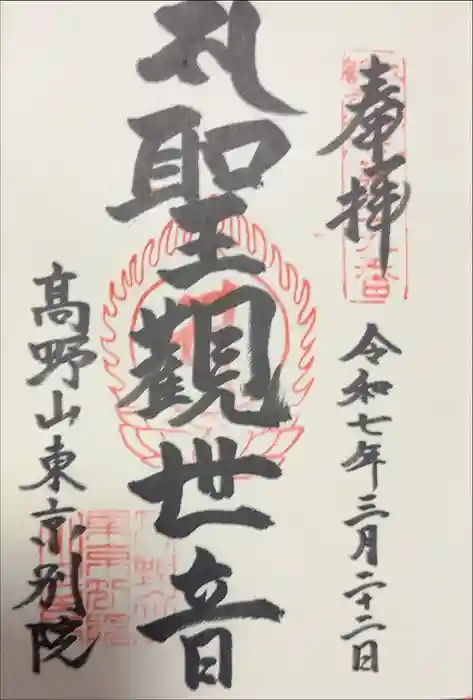 奉拝
令和七年三月二十二日
礼聖觀世音
高野山東京別院